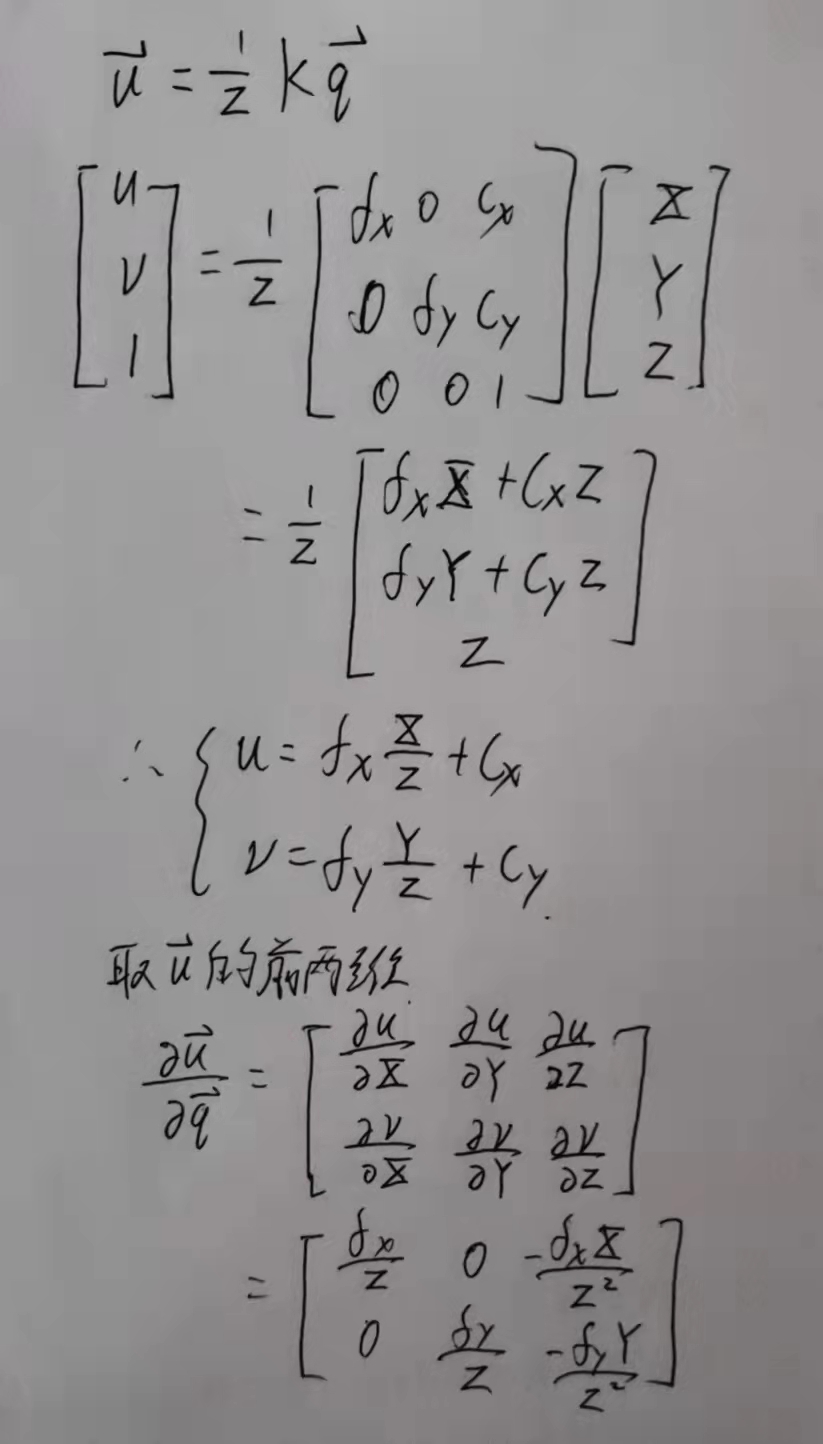 $\vec{u} = \frac{1}{Z} K \vec{q}$
$\begin{bmatrix} u \\ v \\ 1 \end{bmatrix} = \frac{1}{Z} \begin{bmatrix} f_x & 0 & c_x \\ 0 & f_y & c_y \\ 0 & 0 & 1 \end{bmatrix} \begin{bmatrix} X \\ Y \\ Z \end{bmatrix}$
$= \frac{1}{Z} \begin{bmatrix} f_x X + c_x Z \\ f_y Y + c_y Z \\ Z \end{bmatrix}$
$\therefore \begin{cases} u = f_x \frac{X}{Z} + c_x \\ v = f_y \frac{Y}{Z} + c_y. \end{cases}$
取 $\vec{u}$ 的前两维.
$\frac{\partial \vec{u}}{\partial \vec{q}} = \begin{bmatrix} \frac{\partial u}{\partial X} & \frac{\partial u}{\partial Y} & \frac{\partial u}{\partial Z} \\ \frac{\partial v}{\partial X} & \frac{\partial v}{\partial Y} & \frac{\partial v}{\partial Z} \end{bmatrix}$
$= \begin{bmatrix} \frac{f_x}{Z} & 0 & -\frac{f_x X}{Z^2} \\ 0 & \frac{f_y}{Z} & \frac{-f_y Y}{Z^2} \end{bmatrix}$